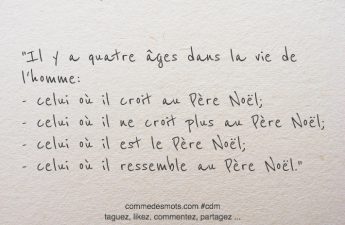 "Il y a quatre âges dans la vie de
l'homme:
- celui où il croit au Père Noël;
- celui où il ne croit plus au Père Noël;
- celui où il est le Père Noël;
- celui où il ressemble au Père Noël."
commedesmots.com #cdm
taguez, likez, commentez, partagez ...